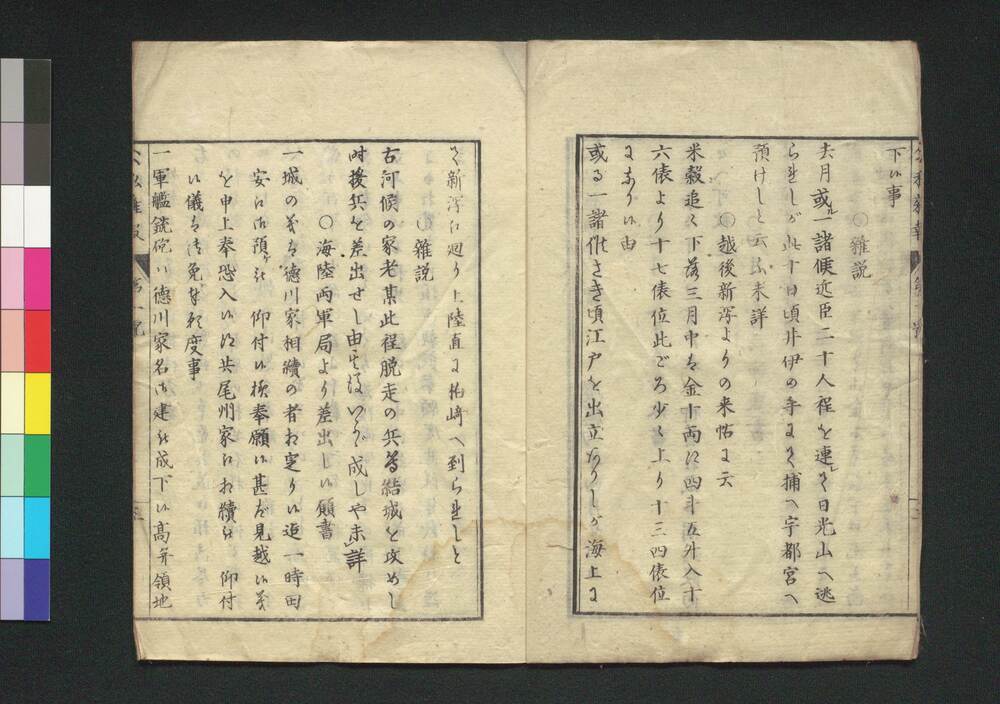 下候事
○雜説
去月或ル一諸侯近臣二十人程を連レて日光山へ逃
られしが此十日頃井伊の手にて捕へ宇都宮へ
預けしと云 未詳
○越後新潟よりの来帖に云
米穀追々下落三月中は金十両に四斗五升入十
六俵より十七俵位此ごろ少々上り十三四俵位
に相成候由
或る一諸侯さき頃江戸を出立ありしが海上に
て新潟に廻り上陸直に柏崎へ到られしと
○雜説
古河候の家老某此程脱走の兵為結城を攻めし
時援兵を差出せし由其後いかが成しや未詳
○海陸両軍局より差出し候願書
一城の義は德川家相續の者相定り候迄一時田
安に御預被 仰付候樣奉願候甚だ見越候義
を申上奉恐入候得共尾州家に相續被 仰付
候儀は御免相願度事
一軍艦銃砲ハ德川家名御建被成下候高并領地